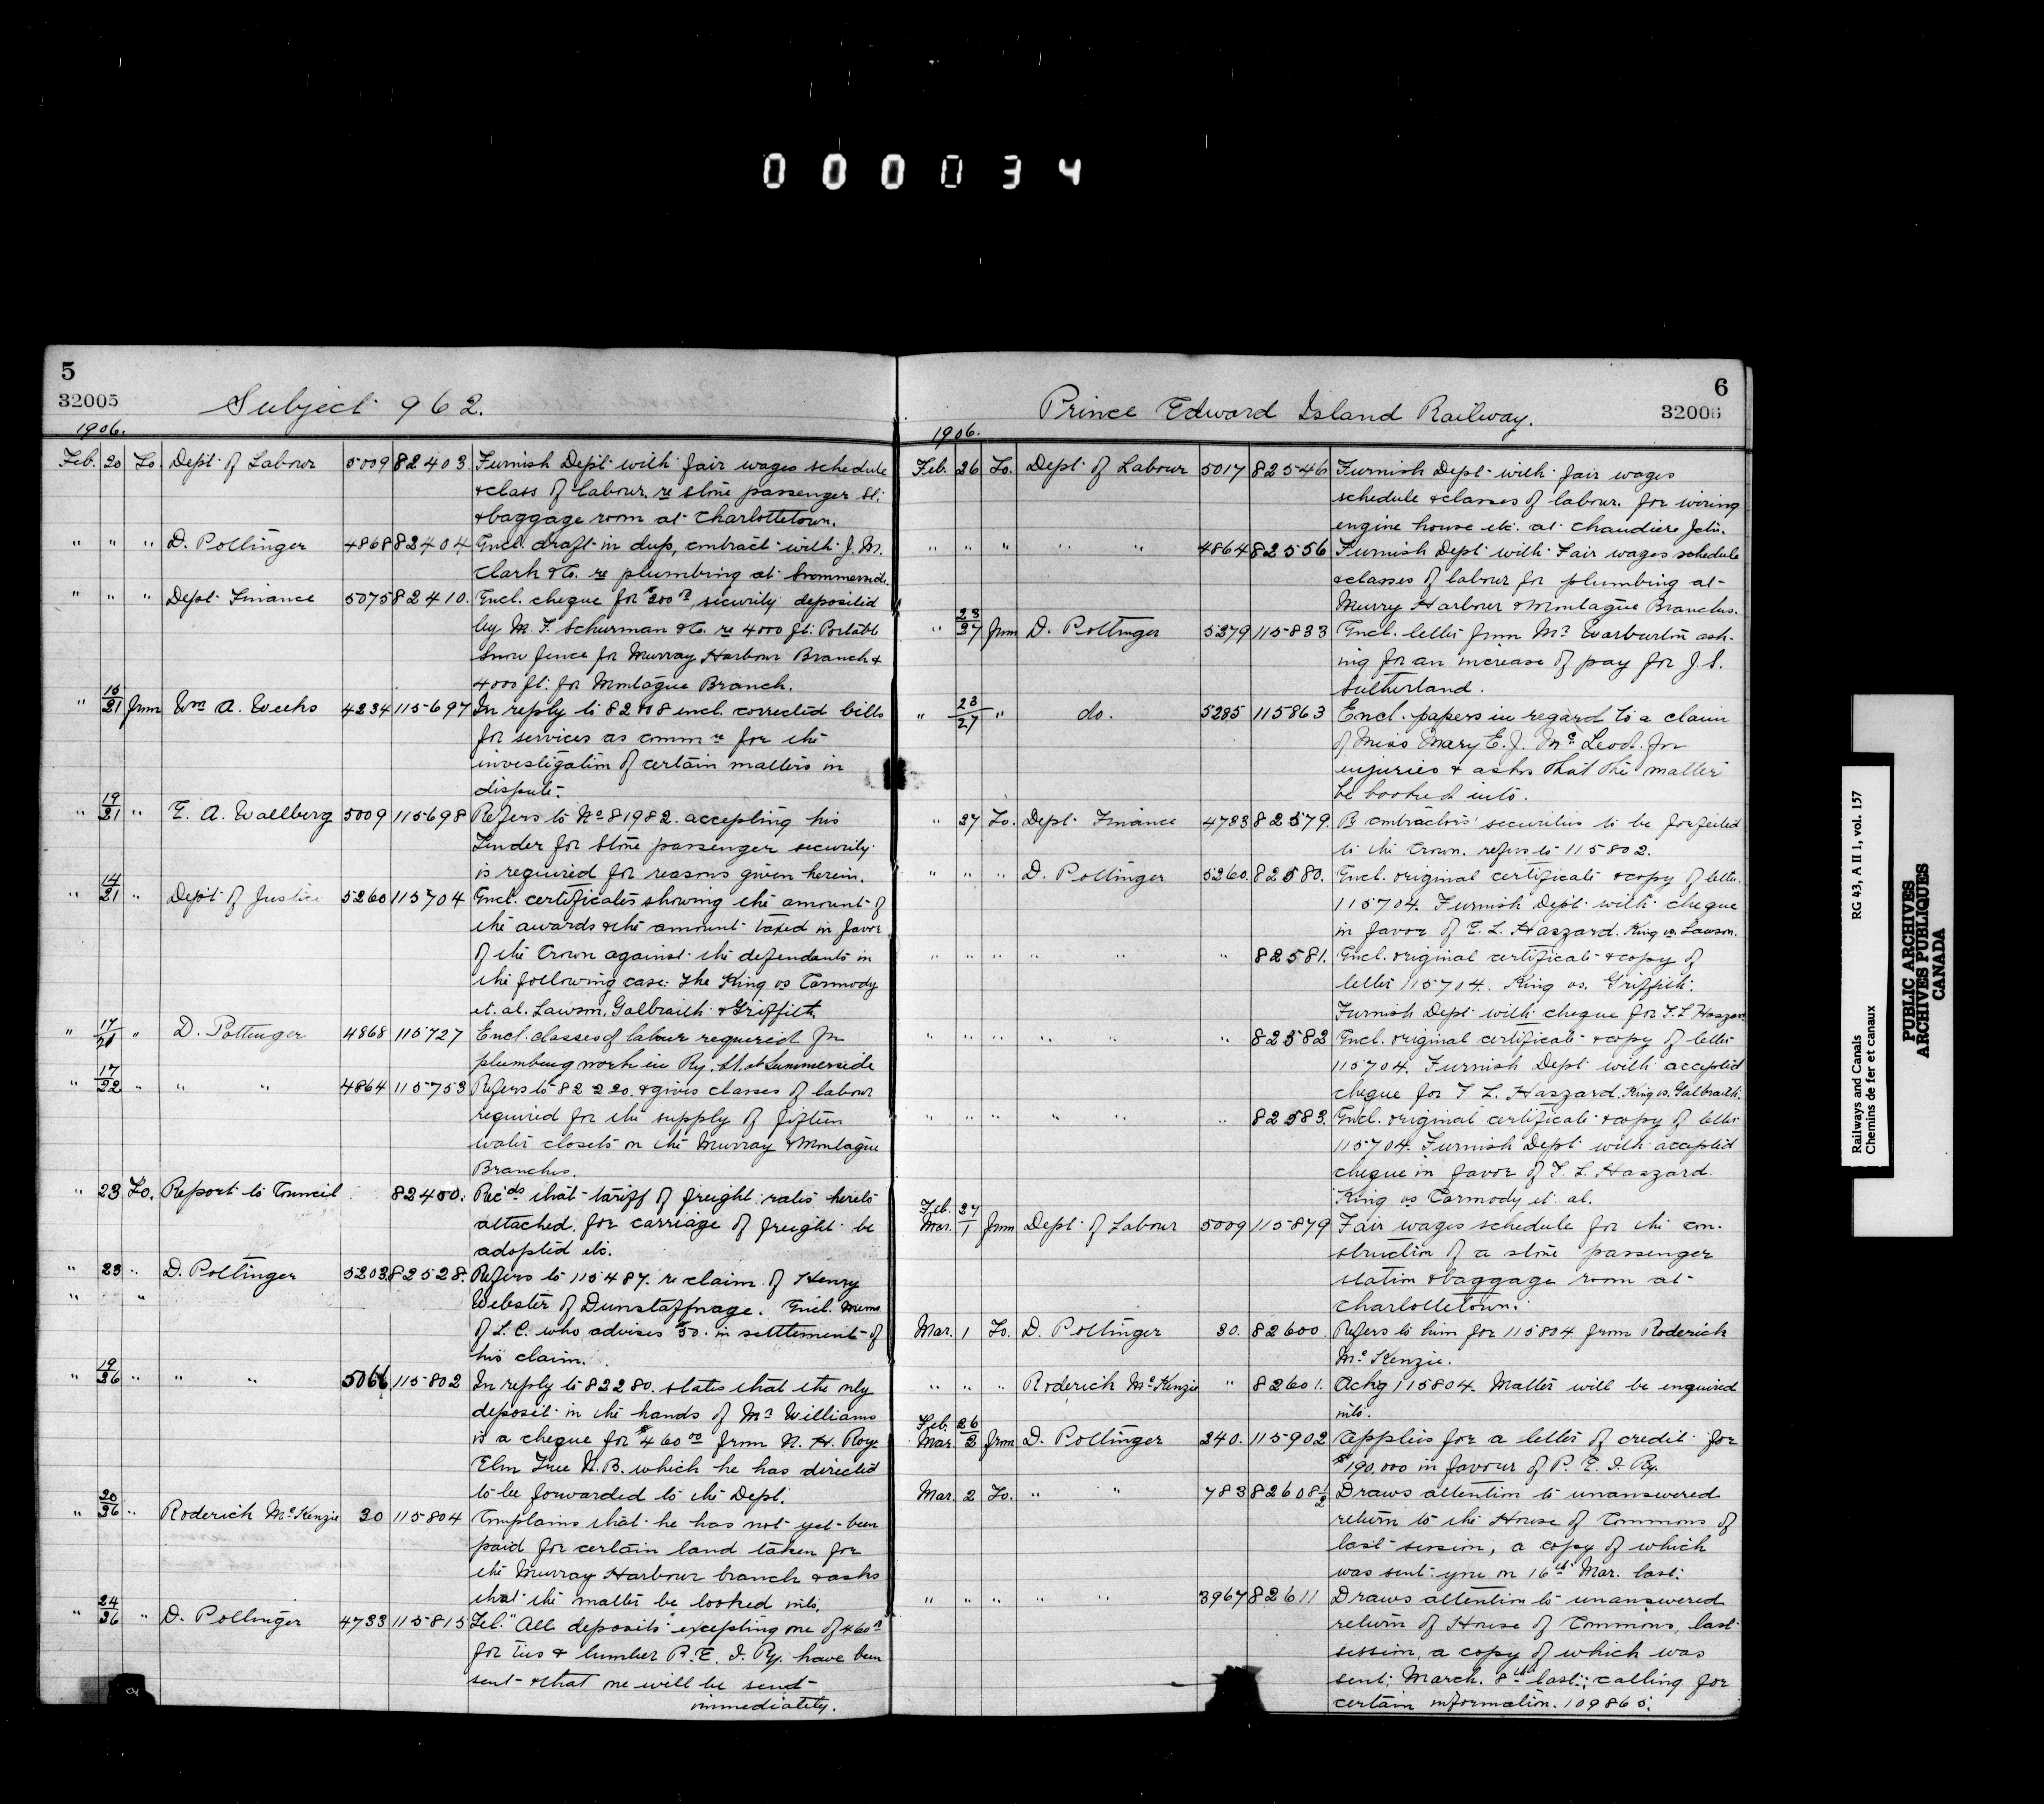 000034
5
32005
Subject 962.
1906.
Feb. 20 To. Dept. of Labour 5009 82403 Furnish Dept. with fair wages schedule
& class of labour re stone passenger St.
& baggage room at Charlottetown.
" " " D. Pottinger 4868 82404 Encl. draft in dup, contract with J. M.
Clark & Co. re plumbing at Summerside.
" " " Dept. Finance 5075 82410. Encl. cheque for security deposited
by M. F. Schurman & Co. re 4000 ft. Portable
Snow fence for Murray Harbour Branch &
4000 ft. for Montague Branch.
" 15/21 from Wm A. Weeks 4234 115697 In reply to encl. corrected bills
for services as commr for the
investigation of certain matters in
dispute.
" 19/21 " E. A. Wallberg 5009 115698 Refers to No 81982. accepting his
Tender for Stone passenger security
is required for reasons given herein.
" 14/21 " Dept of Justice 5260 115704 Encl. certificates showing the amount of
the awards & the amount taxed in favor
of the Crown against the defendants in
the following case: The King vs Carmody
et. al. Lawson, Galbraith & Griffith.
" 17/21 " D. Pottinger 4868 115727 Encl. classes of labour required for
plumbing work in Ry. St. at Summerside
" 17/22 " " " 4864 115753 Refers to 82220. & gives classes of labour
required for the supply of fifteen
water closets on the Murray & Montague
Branches.
" 23 To. Report to Council 82400. Recds that tariff of freight rates hereto
attached for carriage of freight be
adopted etc.
" 23 " D. Pottinger 5203 82528. Refers to 115487. re claim of Henry
" " Webster of Dunstaffnage. Encl. memo
of L. C. who advises $50. in settlement of
his claim.
" 19/26 " " " 5066 115802 In reply to 82280. states that the only
deposit in the hands of Mr Williams
is a cheque for $460 00 from N. H. Roy
Elm Tree N.B. which he has directed
to be forwarded to the Dept.
" 20/26 " Roderick McKenzie 30 115804 Complains that he has not yet been
paid for certain land taken for
the Murray Harbour branch & asks
that the matter be looked into.
" 24/26 " D. Pottinger 4733 115815 Tel. "All deposits excepting one of 460
for ties & lumber P. E. I. Ry. have been
sent & that one will be sent
immediately.
6
32006
Prince Edward Island Railway.
1906.
Feb. 26 To. Dept. of Labour 5017 82546 Furnish Dept. with fair wages
schedule & classes of labour. for wiring
engine house etc. at Chaudiere Jctn.
" " " " " 4864 82556 Furnish Dept. with Fair wages schedule
& classes of labour for plumbing at
Murry Harbour & Montague Branches.
" 23/27 from D. Pottinger 5279 115833 Encl. letter from Mr Warburton ask-
ing for an increase of pay for J. S.
Sutherland.
" 23/27 " do. 5285 115863 Encl. papers in regard to a claim
of Miss Mary E. J. McLeod. for
injuries & asks that the matter
be looked into.
" 27 To. Dept. Finance 4733 82579. Re contractors' securities to be forfeited
to the Crown. refers to 115802.
" " " D. Pottinger 5260. 82580. Encl. original certificate & copy of letter
115704. Furnish Dept with cheque
in favor of F. L. Haszard. King vs. Lawson.
" " " " " " 82581. Encl. original certificate & copy of
letter 115704. King vs. Griffith.
Furnish Dept. with cheque for F. L. Haszard
" " " " " " 82582 Encl. original certificate & copy of letter
115704. Furnish Dept with accepted
cheque for F. L. Haszard. King vs. Galbraith.
" " " " " " 82583. Encl. original certificate & copy of letter
115704. Furnish Dept. with accepted
cheque in favor of F. L. Haszard.
King vs Carmody et. al.
Feb. 27
Mar. 1 from Dept. of Labour 5009 115879 Fair wages schedule for the con-
struction of a stone passenger
station & baggage room at
Charlottetown.
Mar. 1 To. D. Pottinger 30. 82600. Refers to him for 115804 from Roderick
McKenzie.
" " " Roderick McKenzie " 82601. Ackg 115804. Matter will be enquired
into.
Feb. 26
Mar. 2 from D. Pottinger 240. 115902 Applies for a letter of credit for
$190,000 in favour of P. E. I. Ry.
Mar. 2 To. " " 783 82608½ Draws attention to unanswered
return to the House of Commons of
last session, a copy of which
was sent you on 16th Mar. last.
" " " " " 3967 82611 Draws attention to unanswered
return of House of Commons, last
session, a copy of which was
sent, March. 8th last; calling for
certain information. 109865.
Railways and Canals RG 43, A II 1, vol. 157
Chemins de fer et canaux
PUBLIC ARCHIVES
ARCHIVES PUBLIQUES
CANADA